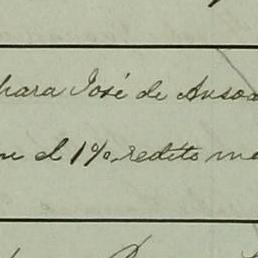 para José de Ansoa
el 1% redito me